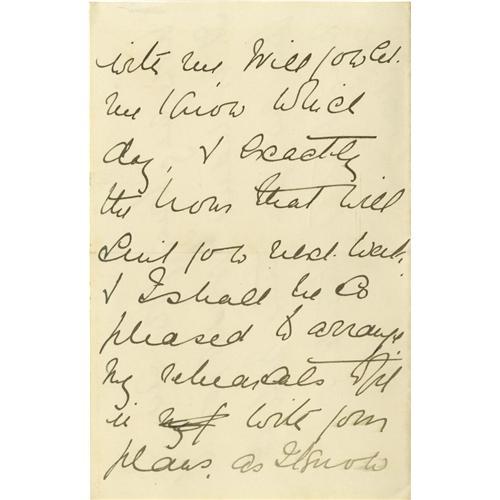 with me Will you let
me know which
day, & exactly
the hour that will
suit you next week,
& I shall be so
pleased to arrange
my rehearsals to fit
in with your
plans. as I know